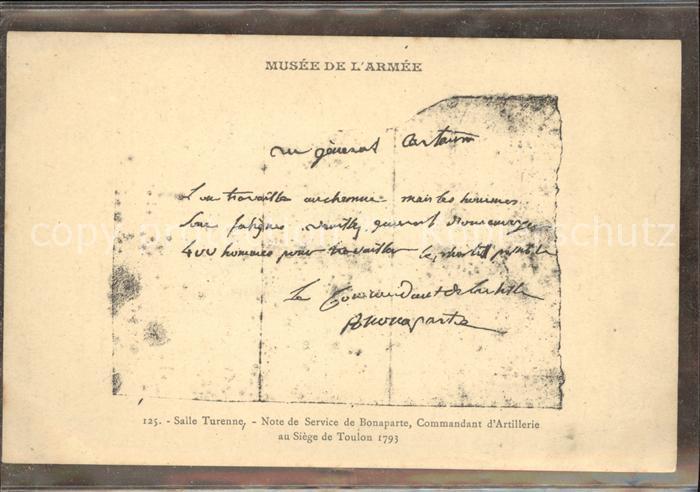 MUSÉE DE L'ARMÉE
au général Cartaux
L'on travaille au chemin - mais les hommes
sont fatigués, veuillez, général, nous envoyer
400 hommes pour travailler le possible
Le Commandant de l'artillerie
Buonaparte
125. - Salle Turenne, - Note de Service de Bonaparte, Commandant d'Artillerie
au Siège de Toulon 1793